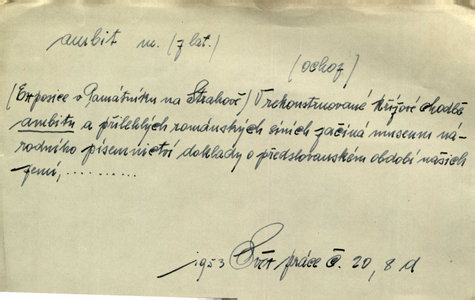 ambit m. (z lat.)
(ochoz)
(Exposice v Památníku na Strahově) V rekonstruované křížové chodbě
ambitu a přilehlých románských síních začíná museum ná-
rodního písemnictví doklady o předslovanském období našich
zemí, ..........
1953 Svět práce č. 20, 8 d